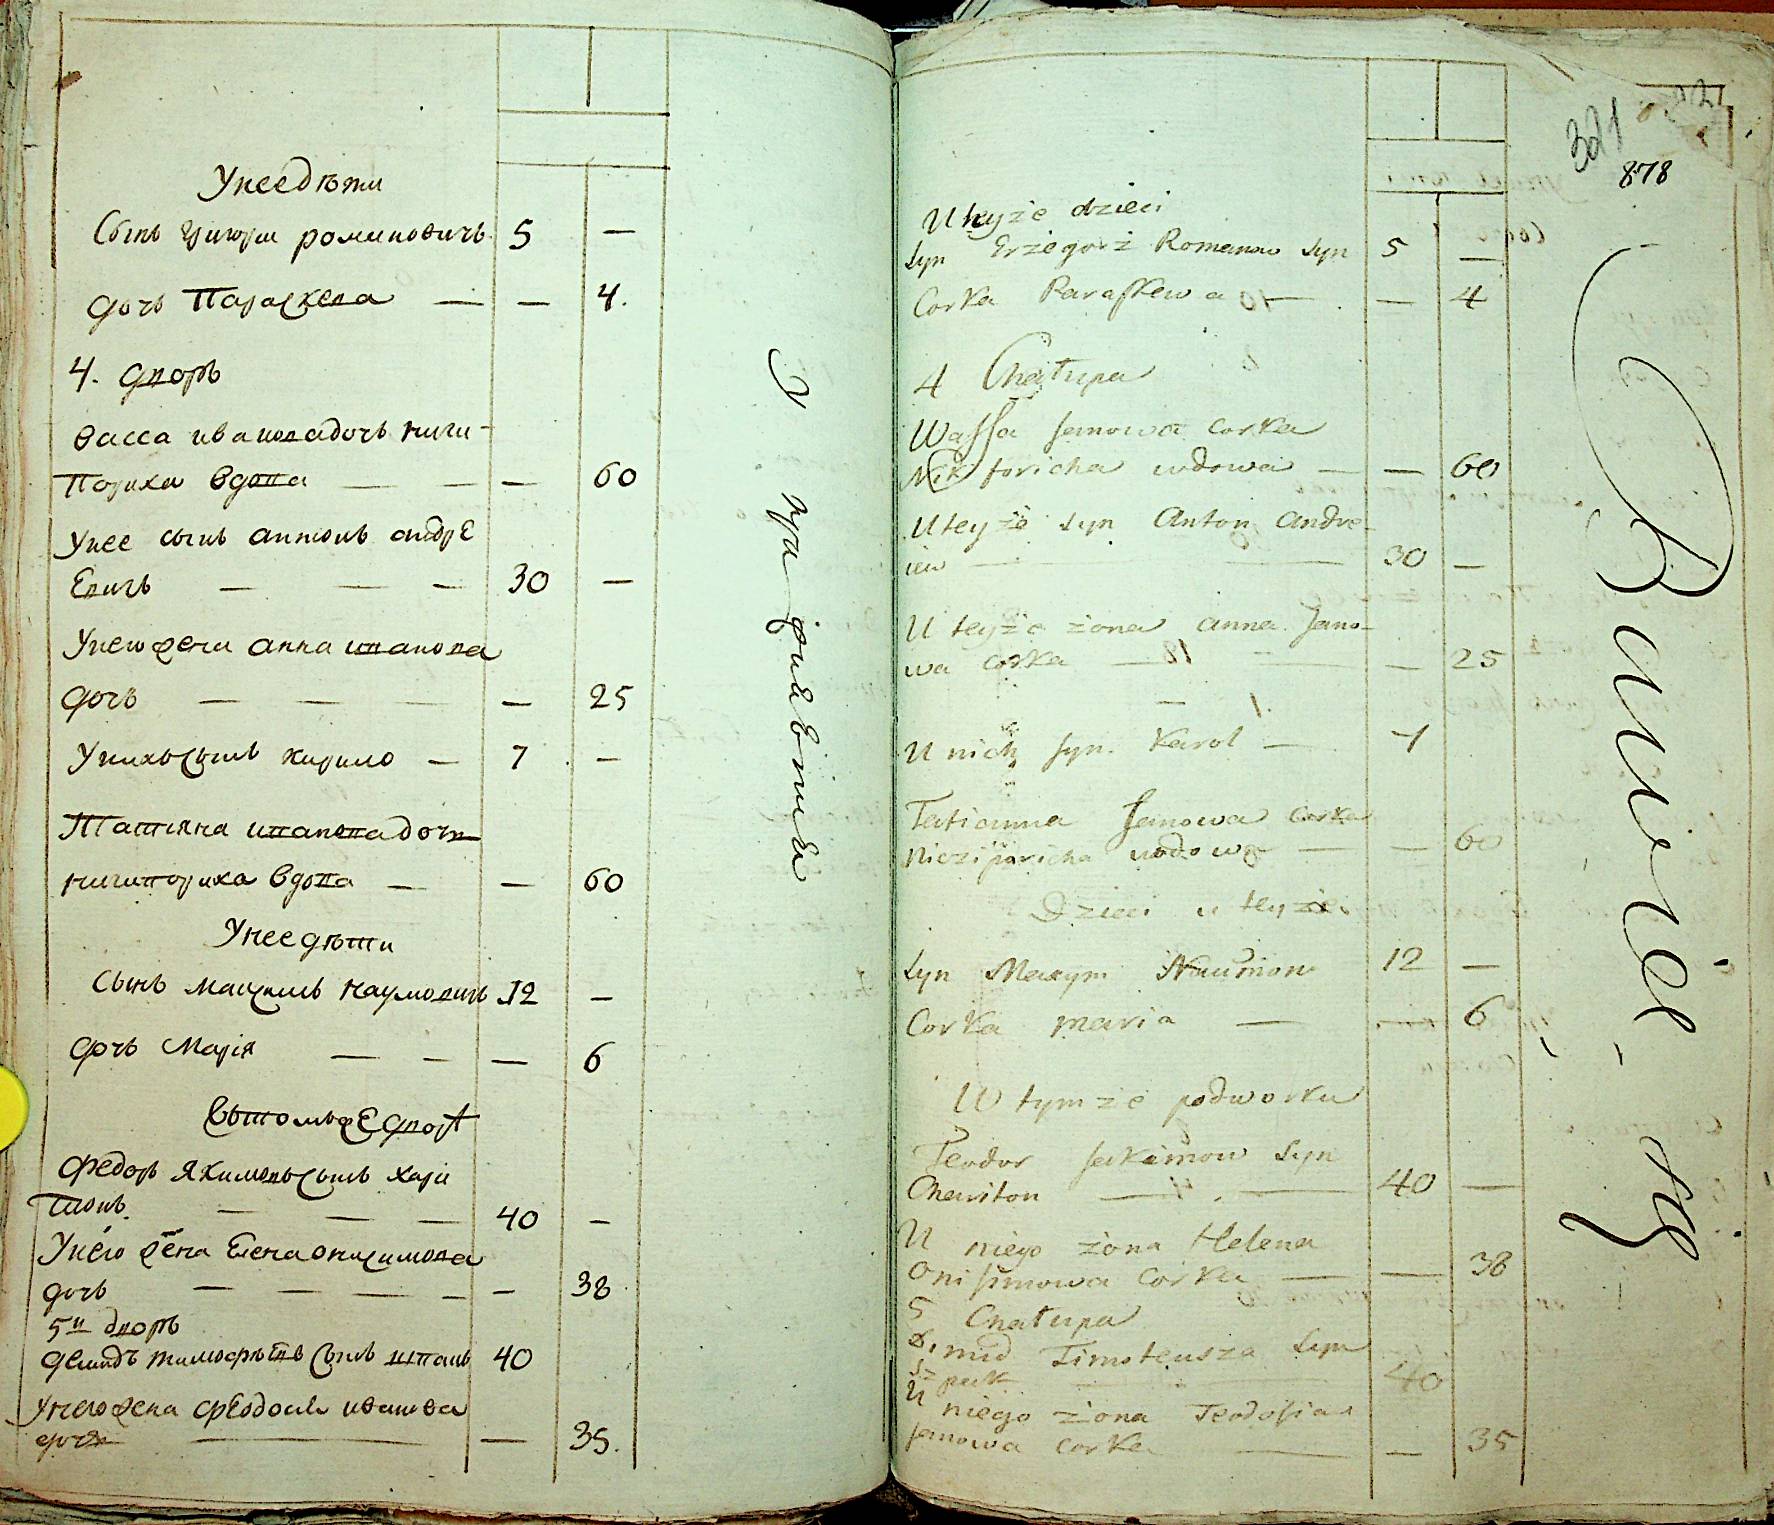 Унее дѣти
Сынъ григорш романовичъ 5 —
дочь Параскева — — 4.
4. дворъ
васса иванова дочь ничи-
пориха вдова — — — 60
Унее сынъ антонъ андре
евичъ — — — 30 —
Унего жена анна иванова
дочь — — — — 25
Унихъ сынъ кирило — 7 —
Татіяна иванова дочь
ничипориха вдова — — 60
Унее дѣти
Сынъ максимъ наумовичъ 12 —
дочь Марія — — — 6
Втомъ же дворѣ
Федоръ Якимовъ сынъ хари
тонъ — — — 40 —
Унего жена Елена онисимова
дочь — — — — — 38
5й дворъ
демидъ тимофѣевъ сынъ шпакъ 40
Унего жена Феодосія иванова
дочь — — 35.
321
878
U teyże dzieci
Syn Grzegorz Romanow Syn 5 —
Corka Paraskewa — — 4
4 Chałupa
Wassa Janowa Corka
Nikforicha wdowa — — 60
U teyże Syn Anton Andre-
iew — — 30 —
U teyże żona Anna Jano-
wa Corka — — — 25
U nich Syn Karol — 7
Tatianna Janowa Corka
Nicziparicha wdowa — — 60
Dzieci u teyże
Syn Maxym Naumow 12 —
Corka maria — — 6
W tymże podworku
Teodor Jakimow Syn
Chariton — — 40 —
U niego żona Helena
Onisimowa Corka — — 38
5 Chałupa
Dimid Timoteusza Syn
Szpak — — 40
U niego żona Teodosia
Janowa Corka — — 35